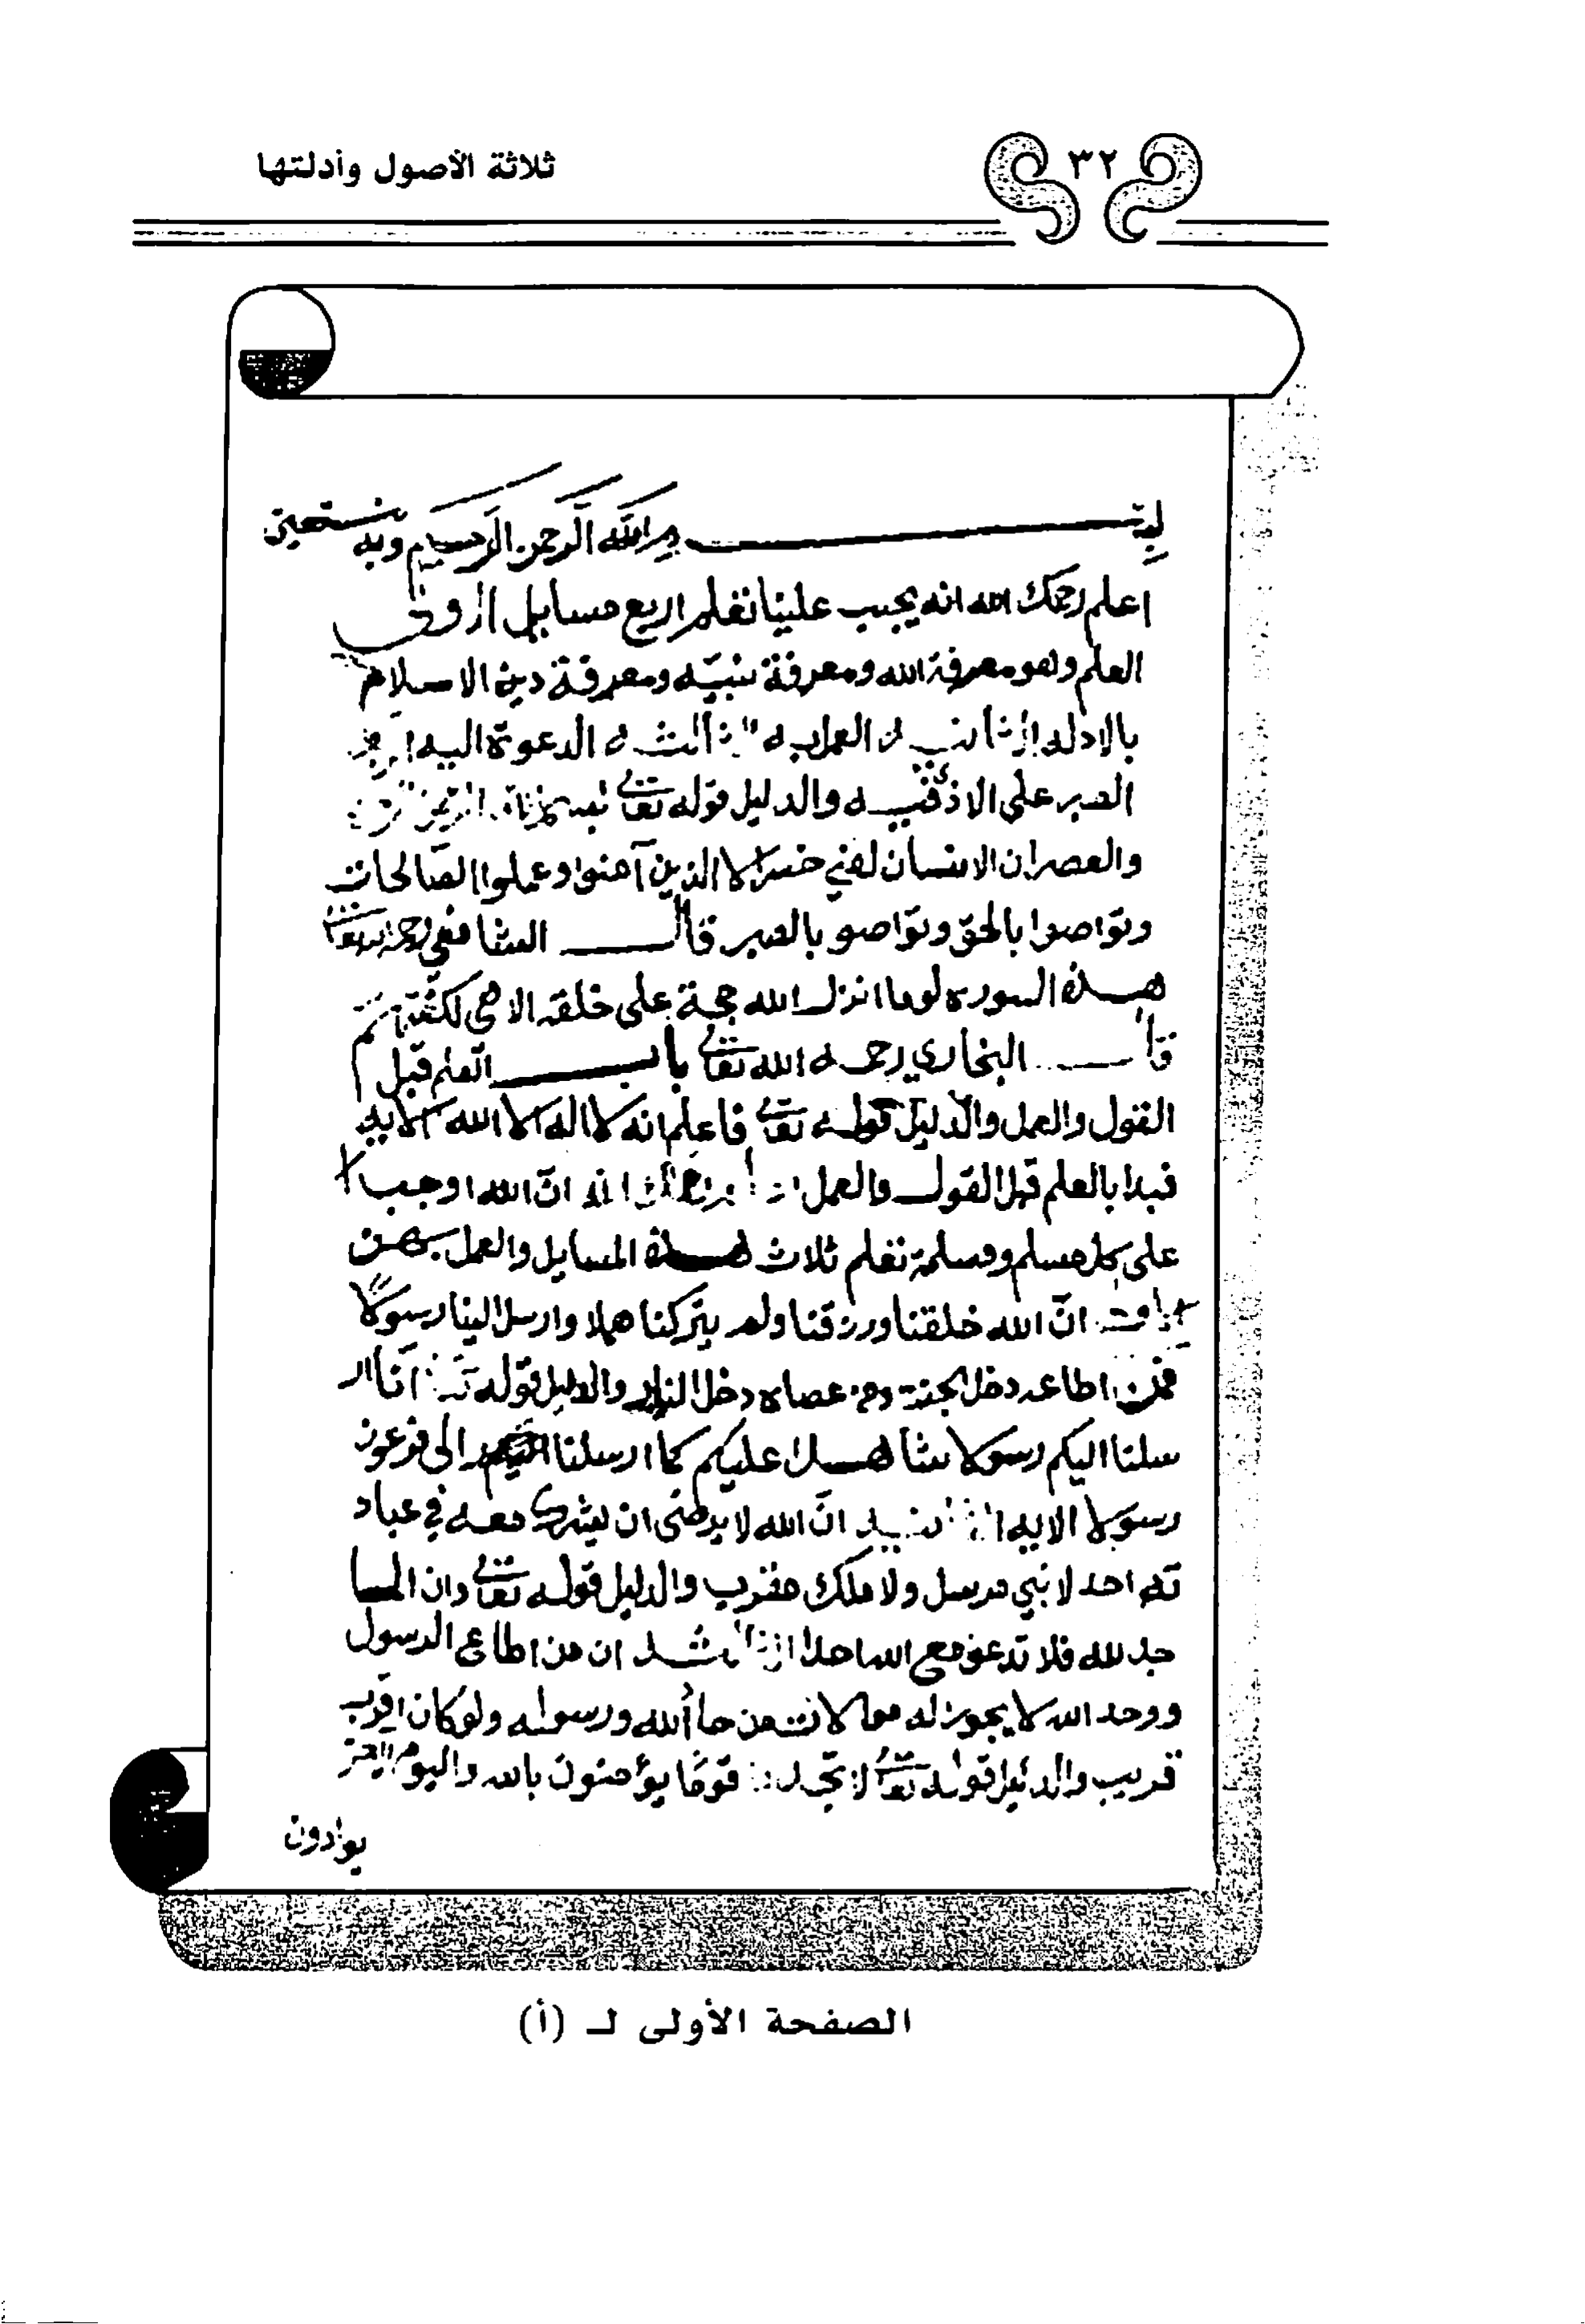 ٣٢
ثلاثة الأصول وأدلتها
بسم الله الرحمن الرحيم وبه نستعين
اعلم رحمك الله انه يجب علينا تعلم اربع مسايل الاولى
العلم وهو معرفة الله ومعرفة نبيّه ومعرفة دين الاسلام
بالادله الثانيه العمل به الثالثه الدعوة اليه
الصبر على الاذى فيه والدليل قوله تعالى بسم الله الرحمن
والعصر ان الانسان لفي خسر الا الذين آمنوا وعملوا الصالحات
وتواصوا بالحق وتواصو بالصبر قال الشافعي رحمه الله تعالى
هذه السوره لو ما انزل الله حجة على خلقه الا هي لكفتهم
قال البخاري رحمه الله تعالى باب العلم قبل
القول والعمل والدليل قوله تعالى فاعلم انه لا اله الا الله الايه
فبدا بالعلم قبل القول والعمل اعلم رحمك الله انّ الله اوجب
على كل مسلم ومسلمة تعلم ثلاث هذه المسايل والعمل بهن
الاولى انّ الله خلقنا ورزقنا ولم يتركنا هملا وارسل الينا رسولا
فمن اطاعه دخل الجنة ومن عصاه دخل النار والدليل قوله تعالى انا ار
سلنا اليكم رسولا شاهدا عليكم كما ارسلنا الى فرعون
رسولا الايه الثانيه انّ الله لا يرضى ان يشرك معه في عباد
ته احد لا نبي مرسل ولا ملك مقرب والدليل قوله تعالى وان المسا
جد لله فلا تدعو مع الله احدا الثالثه ان من اطاع الرسول
ووحد الله لا يجوز له موالات من حاد الله ورسوله ولو كان اقرب
قريب والدليل قوله تعالى لا تجد قومًا يؤمنون بالله واليوم الاخر
يوادون
الصفحة الأولى لـ (أ)